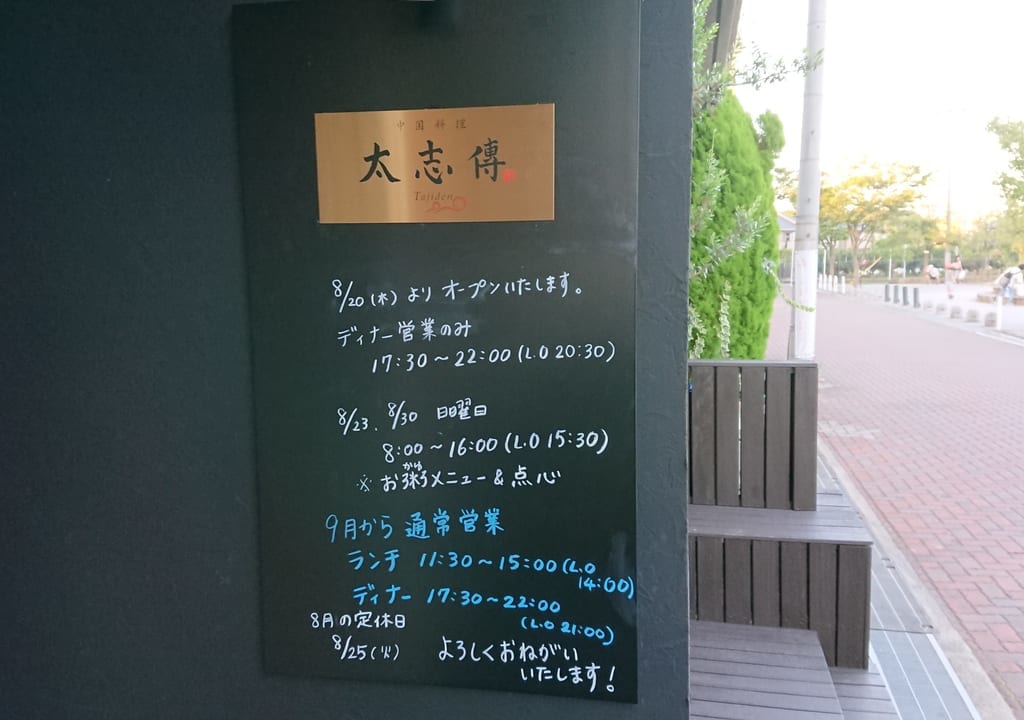 中国料理
太志傳
Tajiden
8/20(木)よりオープンいたします。
ディナー営業のみ
17:30〜22:00(L.O 20:30)
8/23、8/30 日曜日
8:00〜16:00(L.O 15:30)
かゆ
※お粥メニュー&点心
9月から通常営業
ランチ 11:30〜15:00(L.O
14:00)
ディナー 17:30〜22:00
(L.O 21:00)
8月の定休日
8/25(火)
よろしくおねがい
いたします!